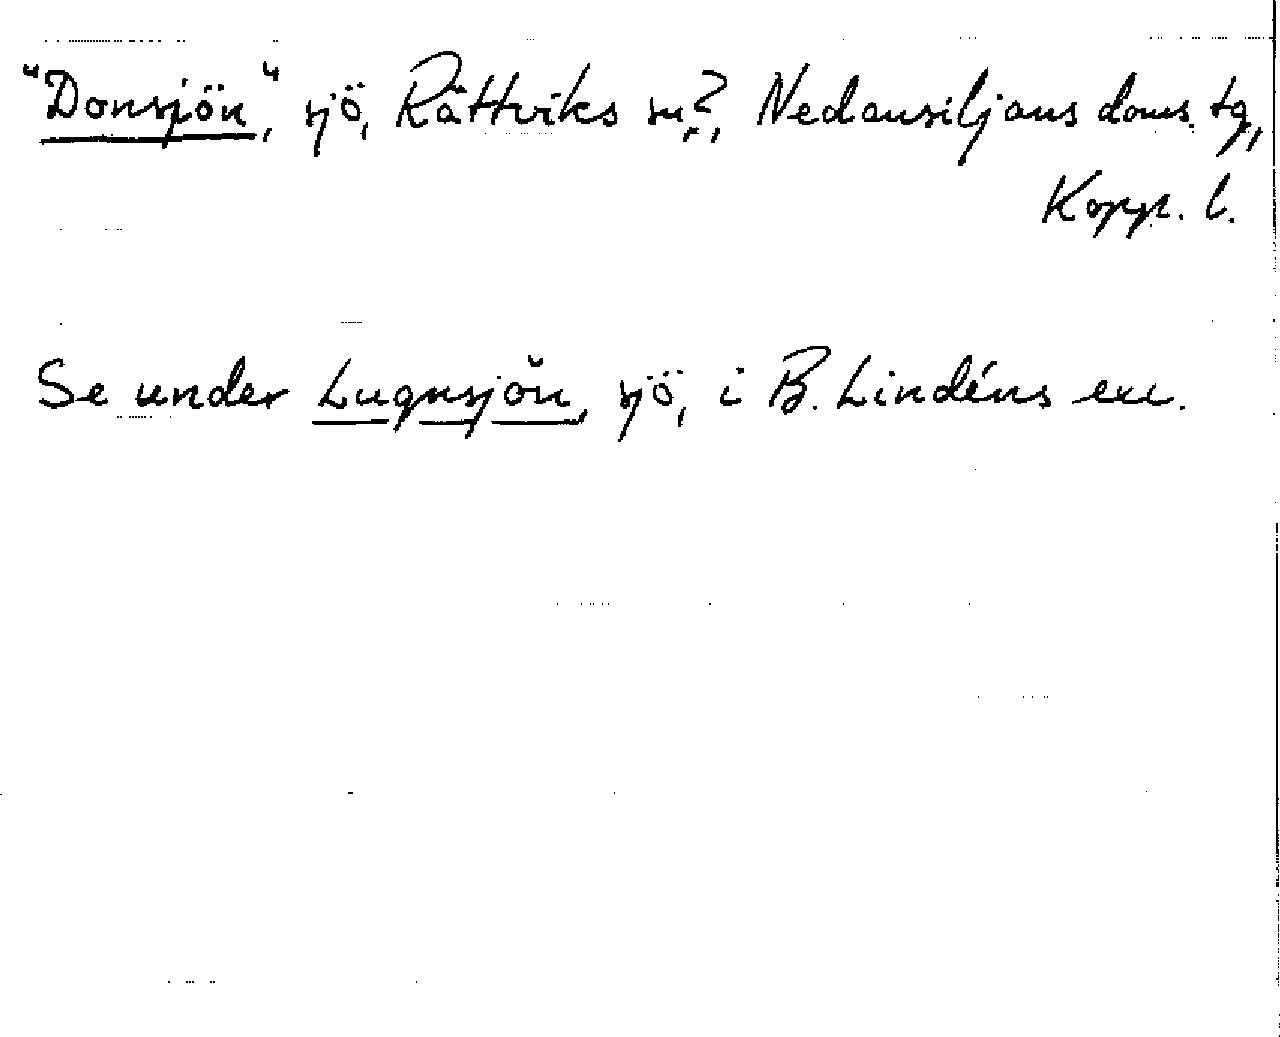 "Donsjön", sjö, Rättviks sn?, Nedansiljans doms. tg,
Kopp. l.
Se under Lugnsjön, sjö, i B. Lindéns exc.